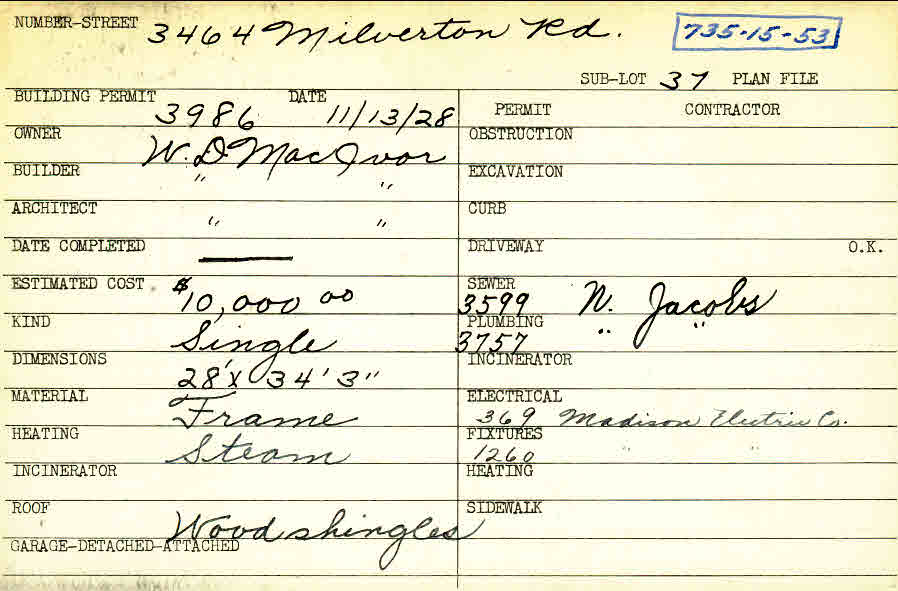 NUMBER-STREET 3464 Milverton Rd. 735-15-53
SUB-LOT 37 PLAN FILE
BUILDING PERMIT 3986 DATE 11/13/28
OWNER W. D MacIvor
BUILDER " "
ARCHITECT " "
DATE COMPLETED —
ESTIMATED COST $10,000 00
KIND Single
DIMENSIONS 28'x 34' 3"
MATERIAL Frame
HEATING Steam
INCINERATOR
ROOF Wood shingles
GARAGE-DETACHED-ATTACHED
PERMIT CONTRACTOR
OBSTRUCTION
EXCAVATION
CURB
DRIVEWAY O.K.
SEWER 3599 N. Jacobs
PLUMBING 3757 " "
INCINERATOR
ELECTRICAL 369 Madison Electric Co.
FIXTURES 1260 " "
HEATING
SIDEWALK